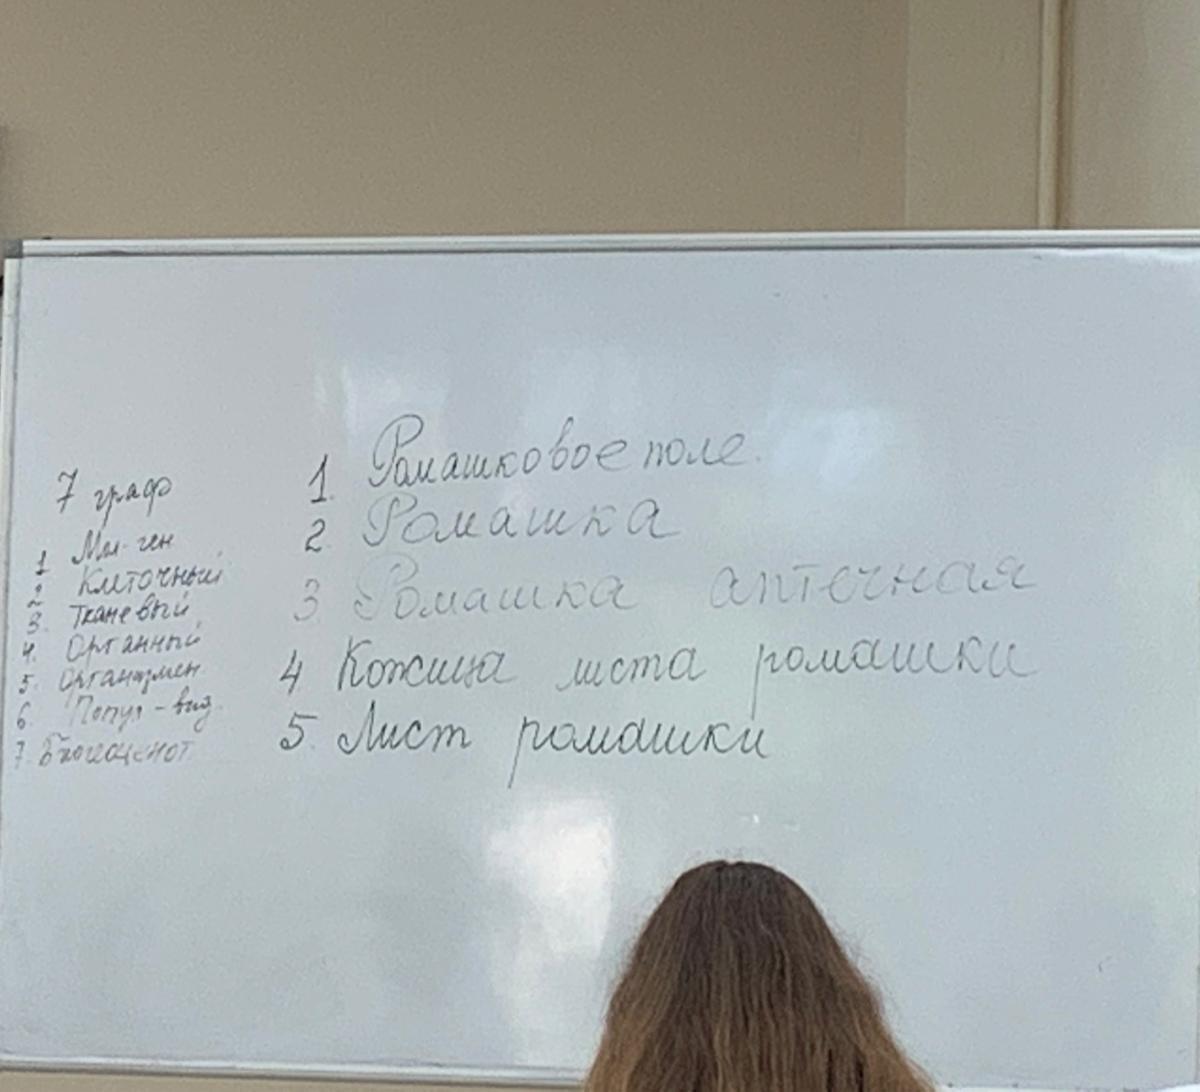 7 граф
1 Мол-ген
2 Клеточный
3. Тканевый
4. Органный
5. Организмен
6. Попул-вид.
7. Биогеоценот
1. Ромашковое поле.
2. Ромашка
3 Ромашка аптечная
4 Кожица листа ромашки
5. Лист ромашки